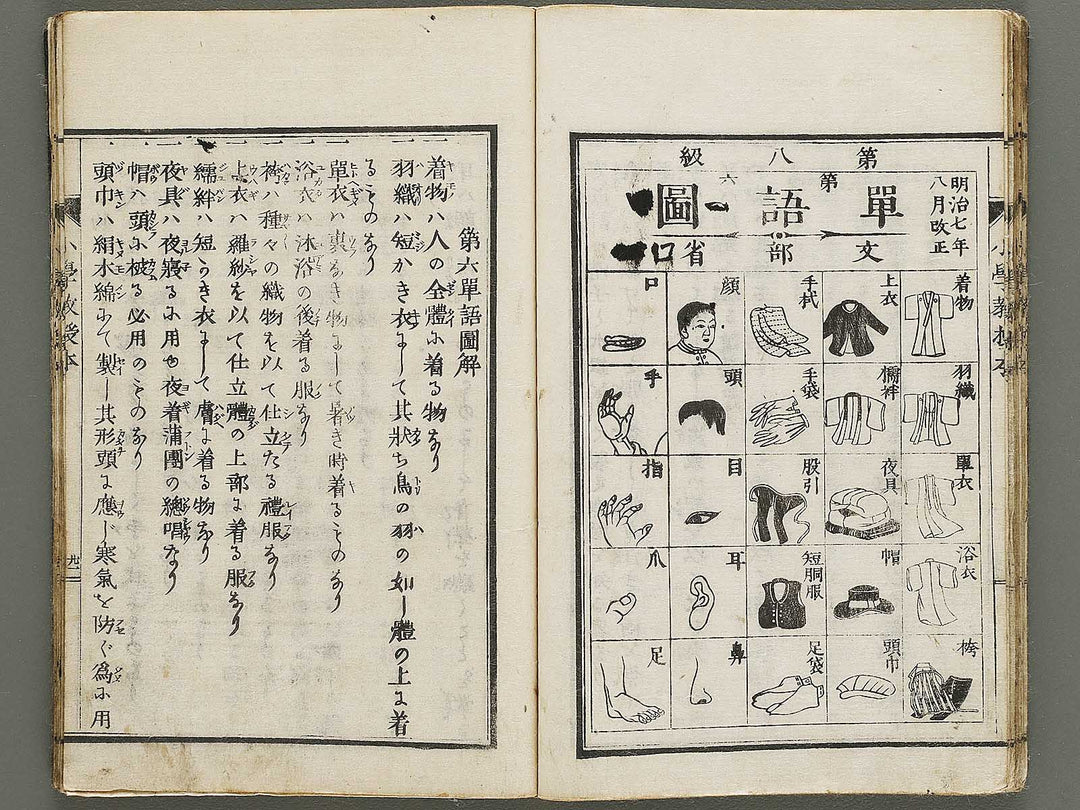 第八級
明治七年
八月改正
第六
單語圖
文部省
着物
羽織
單衣
浴衣
袴
上衣
襦袢
夜具
帽
頭巾
手拭
手袋
股引
短胴服
足袋
顔
頭
目
耳
鼻
口
手
指
爪
足
第六單語圖解
一着物ハ人の全體に着る物なり
一羽織ハ短かき衣にして其狀ち鳥の羽の如し體の上に着
ることのなり
一單衣ハ裏なき物にして暑き時着るものなり
一浴衣ハ沐浴の後着る服なり
一袴ハ種々の織物を以て仕立たる禮服なり
一上衣ハ羅紗を以て仕立體の上部に着る服なり
一襦袢ハ短かき衣にして膚に着る物なり
一夜具ハ夜寢るに用ゆ夜着蒲團の總唱なり
一帽ハ頭に被る必用のものなり
一頭巾ハ絹木綿にて製し其形頭に應し寒氣を防ぐ爲に用
小學敎授本